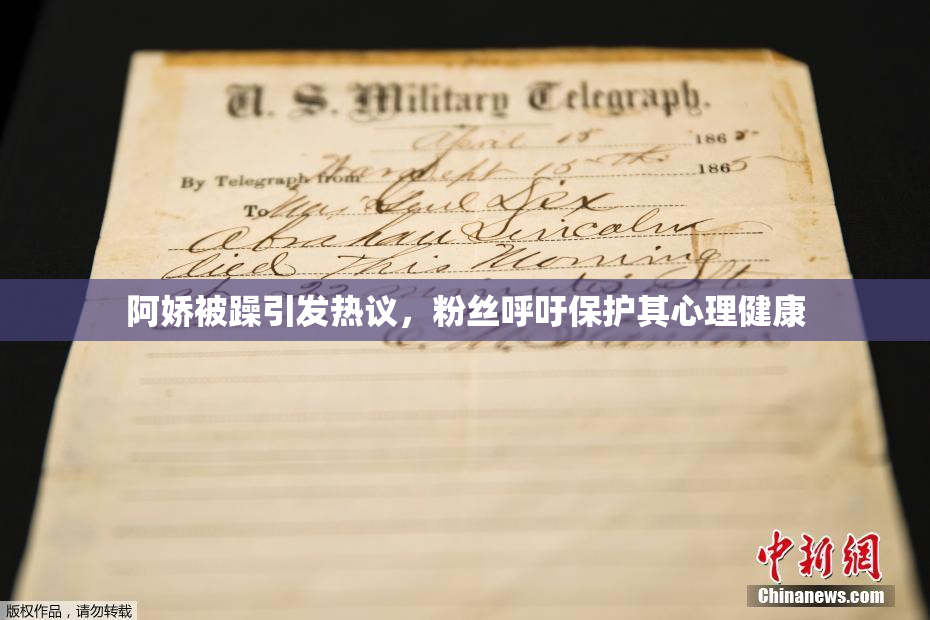 U. S. Military Telegraph.
April 15 1865
By Telegraph from War Dept 15th 1865
To Maj Genl Dix
Abraham Lincoln
died This Morning
at 22 minutes after
阿娇被躁引发热议，粉丝呼吁保护其心理健康
E. M. Stanton
中新网
Chinanews.com
版权作品，请勿转载